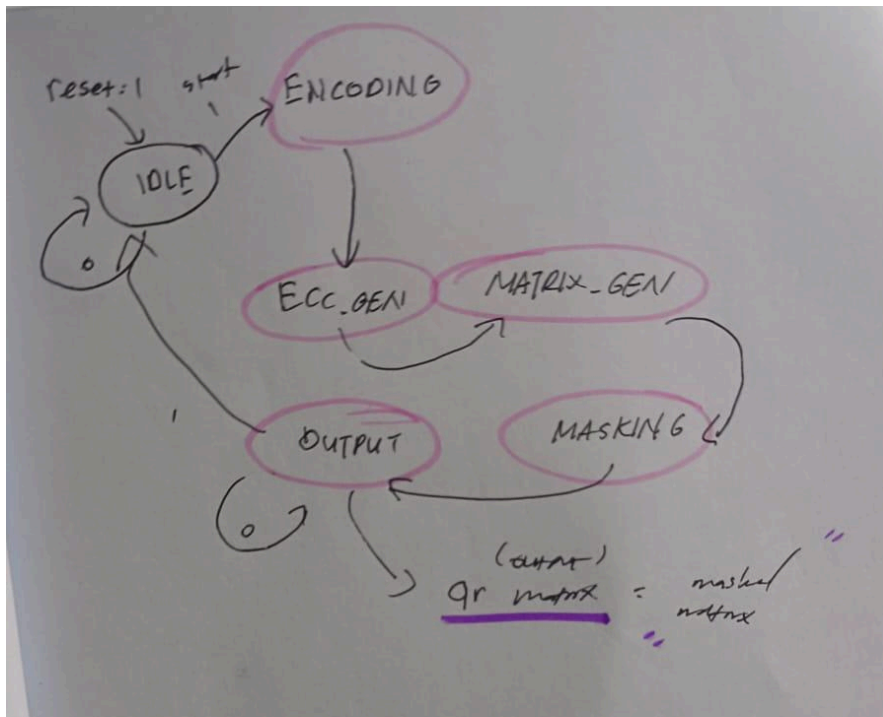 reset:1 start
1
ENCODING
IDLE
0
ECC_GEN MATRIX_GEN
1
OUTPUT MASKING
0
(output)
qr matrix = masked
matrix